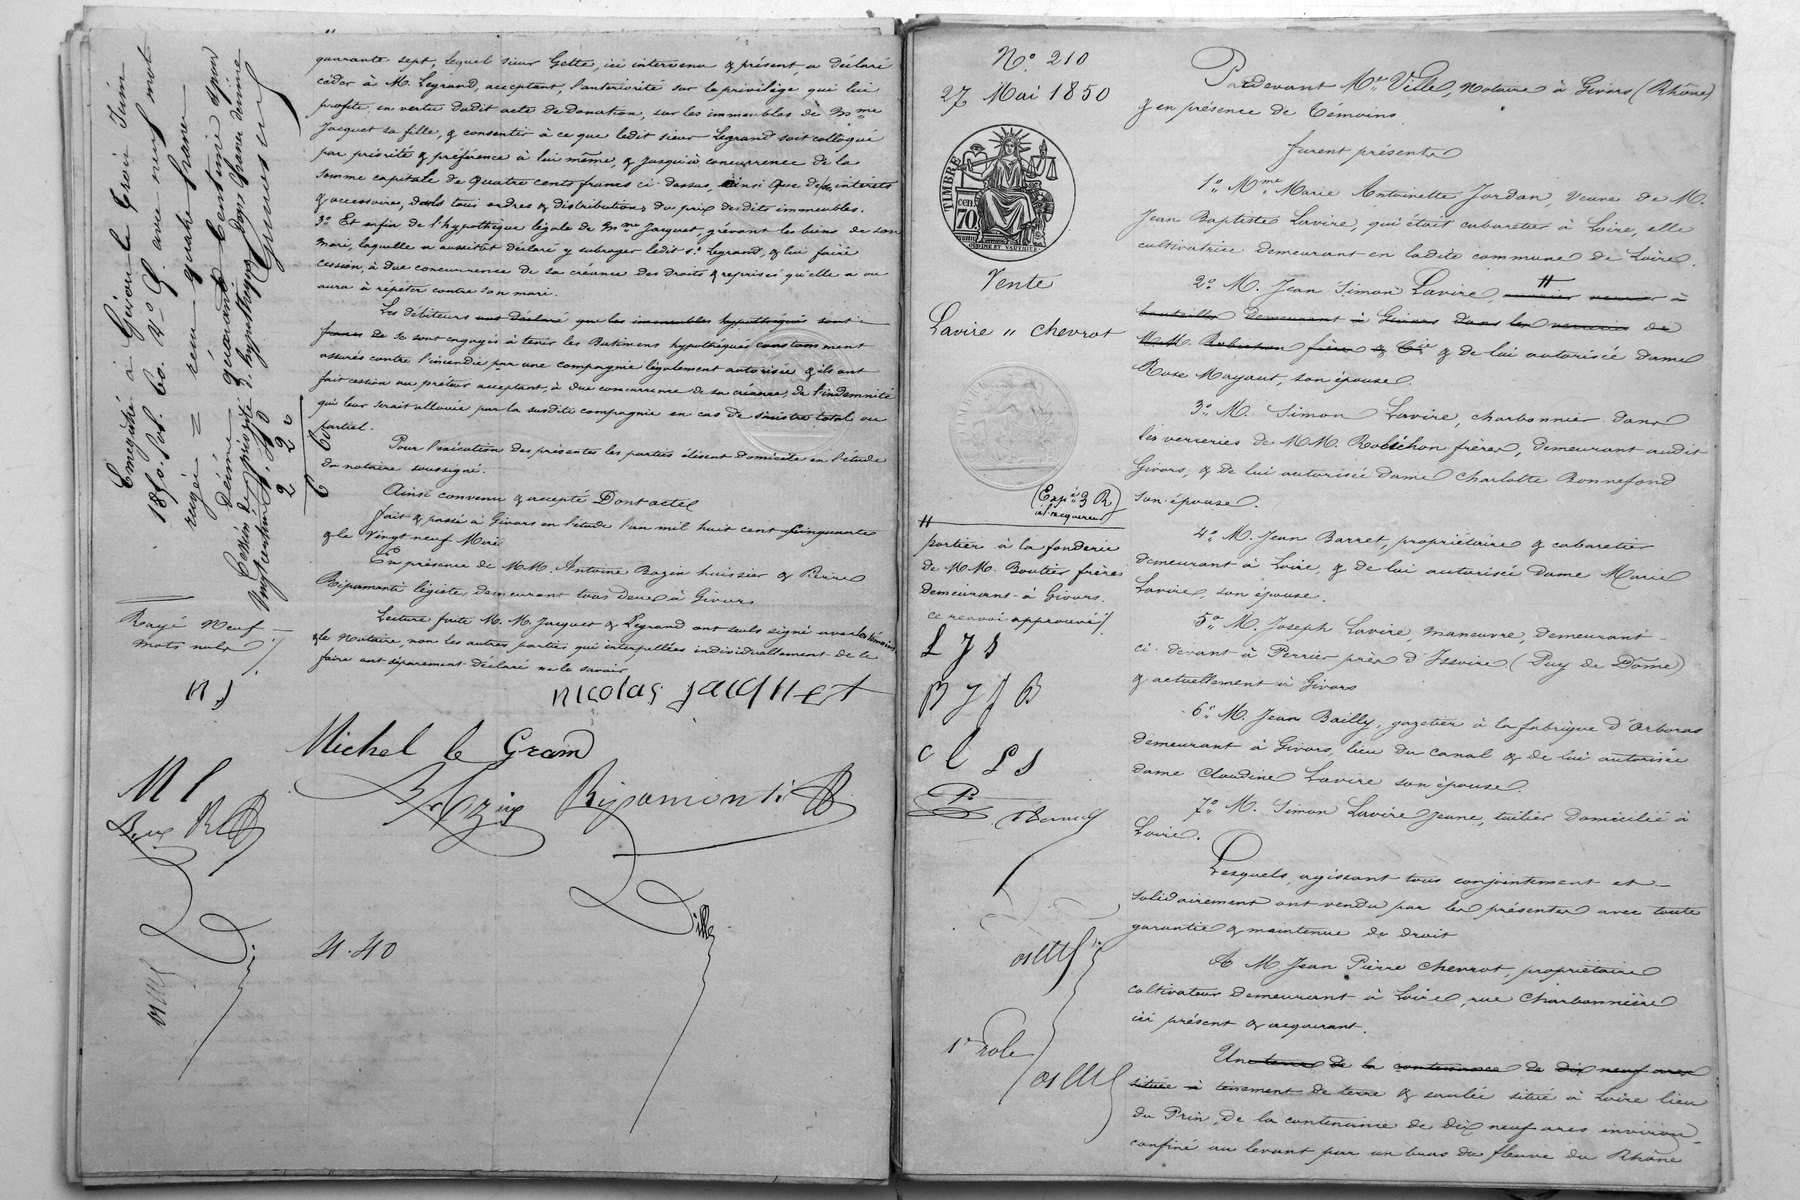 quarante sept, lequel sieur Gette, ici intervenu & présent, a déclaré
céder à M. Legrand, acceptant, l'antériorité sur le privilège qui lui
profite, en vertu dudit acte de Donation, sur les immeubles de Mme
Jacquet sa fille, & consentir à ce que ledit sieur Legrand soit colloqué
par priorité & préférence à lui même, & jusqu'à concurrence de la
somme capitale de Quatre cents francs ci dessus, ainsi que des intérêts
& accessoires, dans tous ordres & distributions du prix desdits immeubles.
3° Et enfin de l'hypothèque légale de Mme Jacquet, grévant les biens de son
mari, laquelle a aussitôt déclaré y subroger ledit sr Legrand, & lui faire
cession, à due concurrence de sa créance des droits & reprises qu'elle a ou
aura à répéter contre son mari.
Les débiteurs ont déclaré que les immeubles hypothéqués sont
se sont engagés à tenir les Batimens hypothéqués constamment
assurés contre l'incendie par une compagnie légalement autorisée & ils ont
fait cession au prêteur acceptant, à due concurrence de sa créance, de l'indemnité
qui leur serait allouée par la susdite compagnie en cas de sinistre total ou
partiel.
Pour l'exécution des présentes les parties élisent domicile en l'étude
du notaire soussigné.
Ainsi convenu & accepté Dont acte
fait & passé à Givors en l'étude l'an mil huit cent cinquante
& le vingt neuf Mai
En présence de MM. Antoine Bazin huissier & Pierre
Ripamonti légiste, demeurant tous deux à Givors
Lecture faite M. M. Jacquet & Legrand ont seuls signé avec les témoins
& le Notaire, non les autres parties qui interpellées individuellement de le
faire ont séparément déclaré ne le savoir
nicolas jacquet
Michel le Grand
Bazin Ripamonti
Ville
4.40
Enregistré à Givors le trois Juin
1850. fol. 60. v° 9. avec neuf mots
rayés = reçu quatre francs
décime quarante centimes
Cession de priorité d'hypothèque deux francs décime
4.40
2 20
6 60
Rayé Neuf
mots nuls
n j
M l
N° 210
27 Mai 1850
TIMBRE
70 cen.
Vente
Lavire " Chevrot
(Expé 3 R
à l'acquéreur)
portier à la fonderie
de M.M. Boutier frères
demeurant à Givors.
ce renvoi approuvé
L J S
B J J B
C l S J
1er role
Pardevant Me Ville, Notaire à Givors (Rhône)
& en présence de Témoins
furent présents
1° Mme Marie Antoinette Jordan, veuve de M.
Jean Baptiste Lavire, qui était cabaretier à Loire, elle
cultivatrice demeurant en ladite commune de Loire.
2° M. Jean Simon Lavire, ouvrier verrier à
bouteilles demeurant à Givors dans les verreries de
MM. Robichon frères & Cie & de lui autorisée dame
Rose Mayout, son épouse.
3° M. Simon Lavire, charbonnier dans
les verreries de MM. Robichon frères, demeurant audit
Givors, & de lui autorisée dame Charlotte Bonnefond
son épouse.
4° M. Jean Barret, propriétaire & cabaretier
demeurant à Loire, & de lui autorisée Dame Marie
Lavire, son épouse.
5° M. Joseph Lavire, manœuvre, demeurant
ci-devant à Perrier près d'Issoire (Puy de Dôme)
& actuellement à Givors
6° M. Jean Bailly, gazetier à la fabrique d'Arboras
demeurant à Givors, lieu du canal & de lui autorisée
dame Claudine Lavire son épouse.
7° M. Simon Lavire jeune, tuilier domicilié à
Loire.
Lesquels, agissant tous conjointement et
solidairement ont vendu par les présentes avec toute
garantie & maintenue de droit
A M. Jean Pierre Chevrot, propriétaire
cultivateur demeurant à Loire, rue Charbonnière
ici présent & acquérant.
Une terre de la contenance de dix neuf ares
située à tènement de terre & saulée situé à Loire lieu
du Prin, de la contenance de dix neuf ares environ,
confiné au levant par un bras du fleuve du Rhône